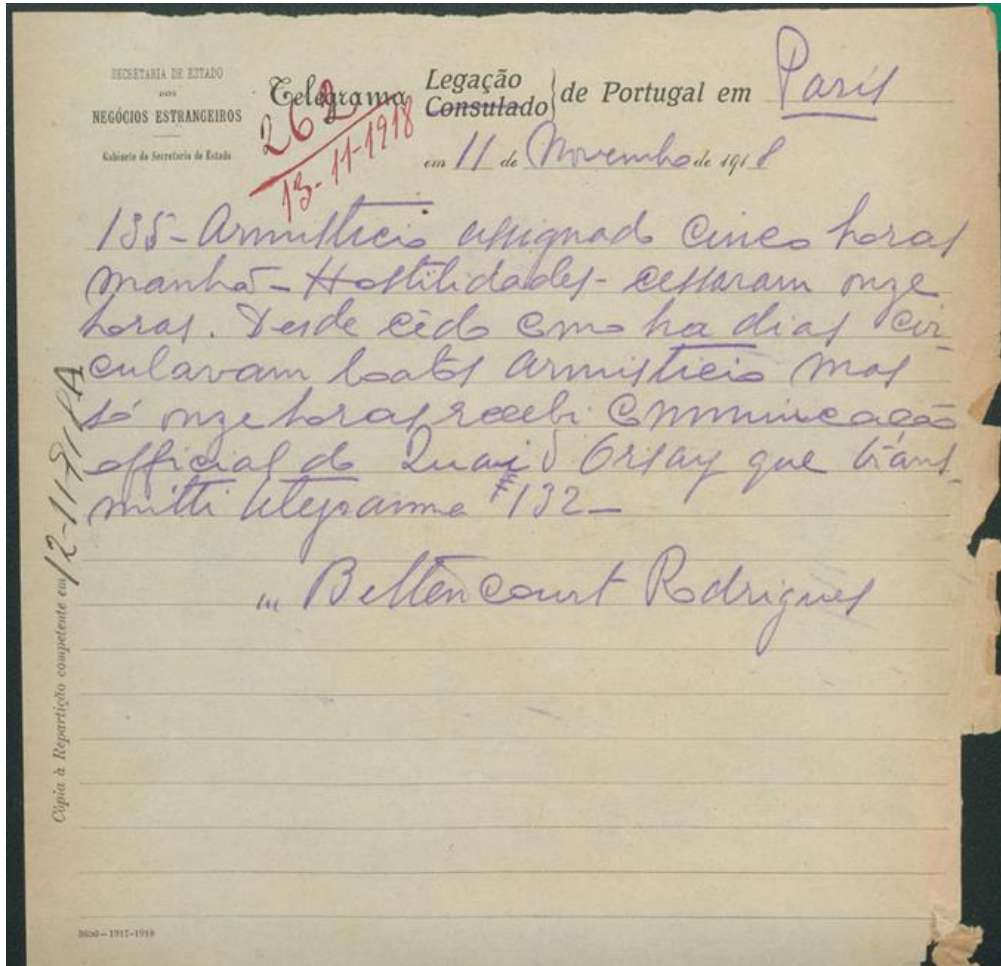 SECRETARIA DE ESTADO
DOS
NEGÓCIOS ESTRANGEIROS
Gabinete do Secretario de Estado
Telegrama
Legação
Consulado
de Portugal em Paris
262
13-11-1918
em 11 de Novembro de 1918
135- Armisticio assignado cinco horas
manhã - Hostilidades - cessaram onze
horas. Desde cêdo como ha dias cir-
culavam boatos armisticio mas
só onze horas recebi communicação
official do Quai d'Orsay que trans-
mitti telegramma 132-
Bettencourt Rodrigues
Cópia à Repartição competente em 12-11-918
3650-1917-1918